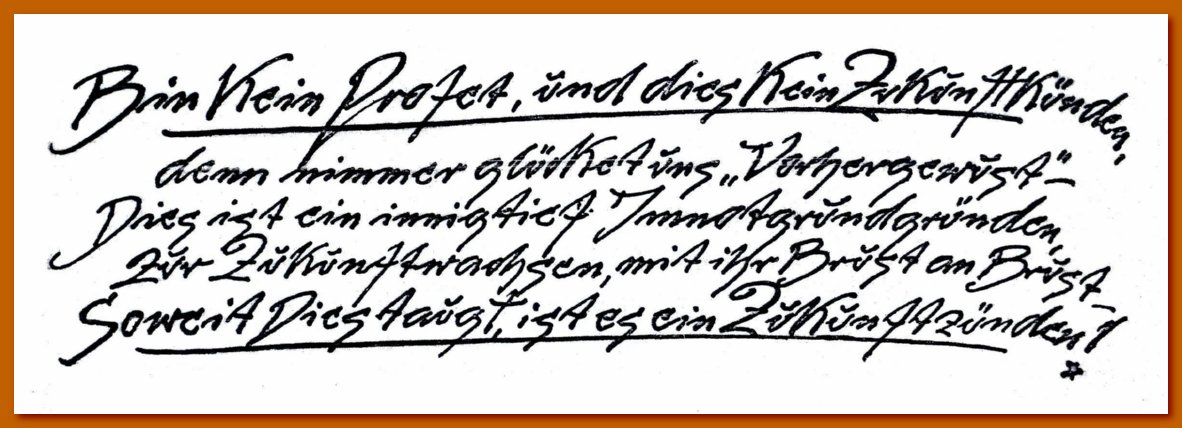 Bin Kein Profet, und dies Kein ZukunftKünden,
denn nimmer glücket uns „Vorhergewust“–
Dies ist ein innigtief Immotgrundgründen,
zur Zukunftwachsen, mit ihr Brust an Brust–
Soweit Dies taugt, ist es ein Zukunftzünden!